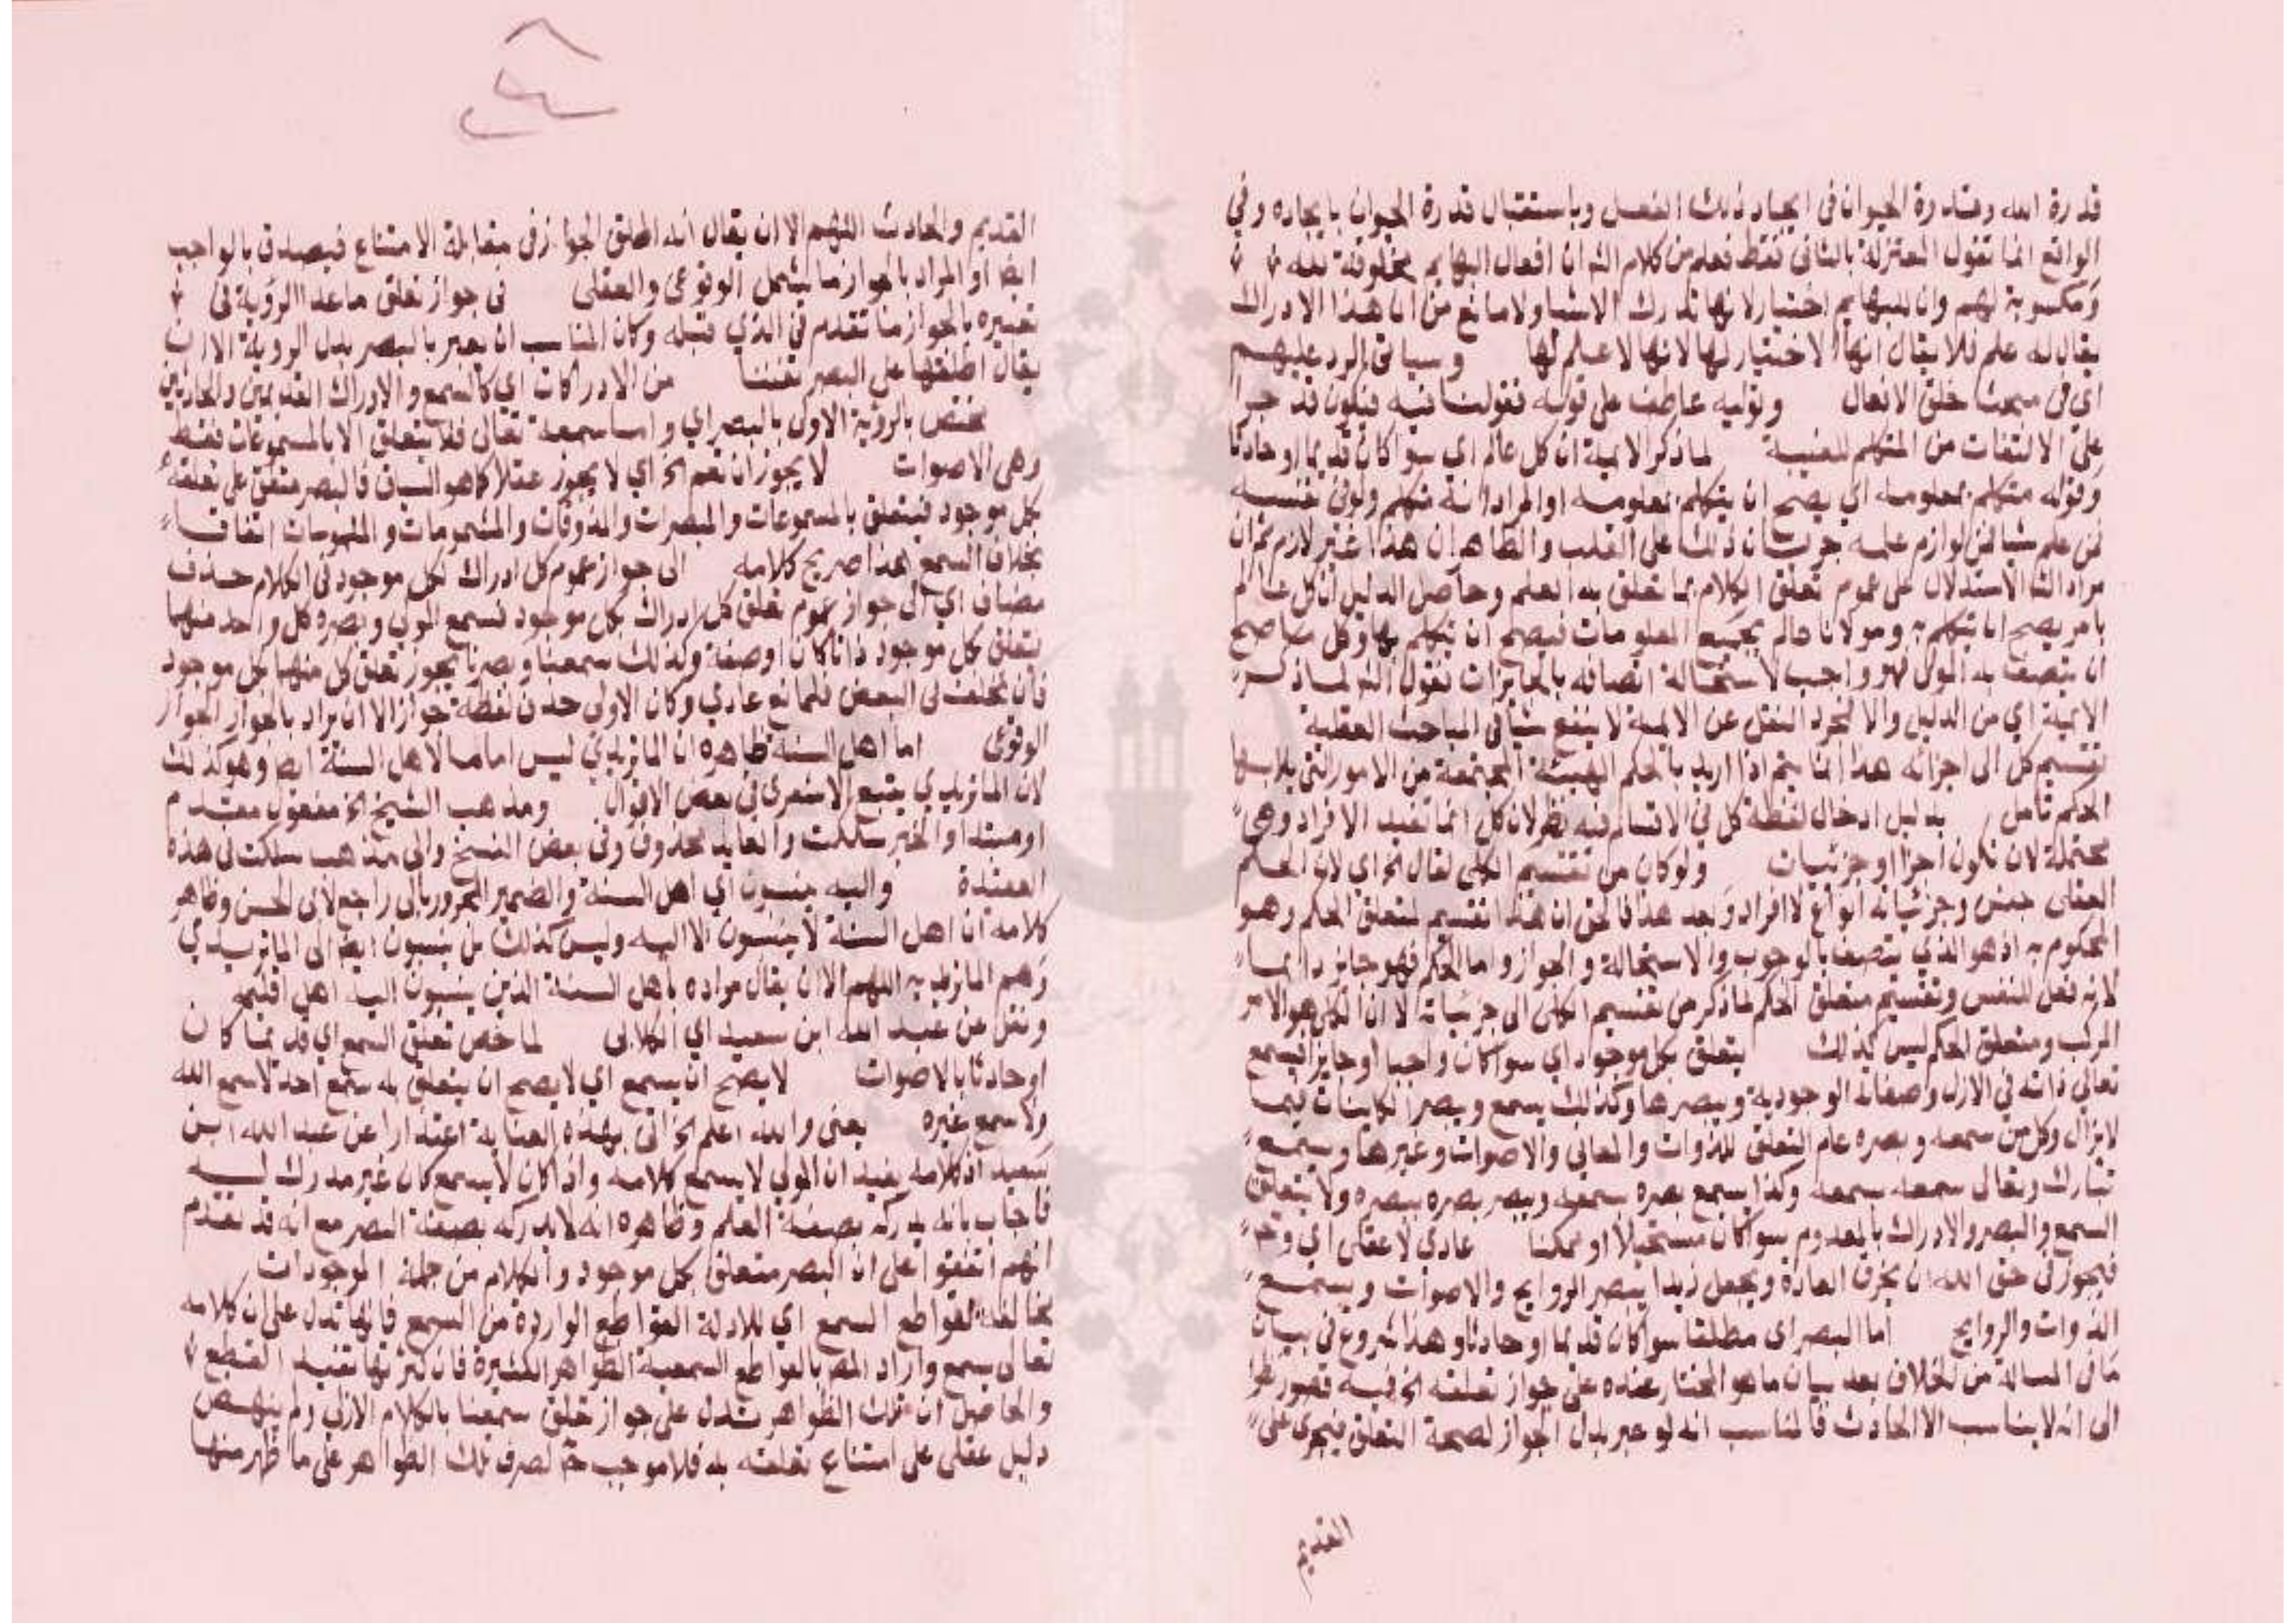 قدرة الله وقدرة الحيوان في ايجاد ذلك الفعل وباستقبال قدرة الحيوان بايجاده وفي
الواقع انما تقول المعتزلة بالثاني فقط فعلم من كلام الش ان افعال البهايم مخلوقة لله
ومكسوبة لهم وان للبهايم اختيار لانها تدرك الاشيا ولا مانع من ان هذا الادراك
يقال له علم فلا يقال انها لا اختيار لها لانها لا علم لها وسياتي الرد عليهم
اي في مبحث خلق الافعال وتوليه عاطف على قوله فيكون قد جرا
على الالتفات من المتكلم للغيبة لما ذكر الايمة ان كل عالم اي سوا كان قديما او حادثا
وقوله متكلم بمعلومه اي يصح ان يتكلم بمعلومه او المراد انه متكلم ولو في نفسه
فمن علم شيا فمن لوازم علمه جريان ذلك على القلب والظاهر ان هذا غير لازم ثم ان
مراد الش الاستدلال على عموم تعلق الكلام بما تعلق به العلم وحاصل الدليل ان كل عالم
بامر يصح ان يتكلم به ومولانا عالم بجميع المعلومات فيصح ان يتكلم بها وكل ما صح
ان يتصف به المولى فهو واجب لاستحالة اتصافه بالجايزات فقول الش لما ذكر
الايمة اي من الدليل والا لمجرد النقل عن الايمة لا ينفع شيا في المباحث العقلية
تقسيم كل الى اجزائه هذا انما يتم اذا اريد بالحكم الهيئة المجتمعة من الامور التي
الحكم تامل بدليل ادخال لفظة كل في الاقسام فيه نظر لان كل انما تفيد الافراد وهي
محتملة لان تكون اجزا او جزئيات ولو كان من تقسيم الكلي لقال الخ اي لان الحكم
العقلي جنس وجزئياته انواع لا افراد وبعد هذا فالحق ان هذا تقسيم لمتعلق الحكم وهو
المحكوم به اذ هو الذي يتصف بالوجوب والاستحالة والجواز واما الحكم فهو جايز دايما
لانه فعل للنفس وتقسيم متعلق الحكم لما ذكر من تقسيم الكلي الى جزئياته لا ان الكل هو الامر
المركب ومتعلق الحكم ليس كذلك يتعلق بكل موجود اي سوا كان واجبا او جايزا فيسمع
تعالى ذاته في الازل وصفاته الوجودية ويبصرها وكذلك يسمع ويبصر الكاينات فيما
لا يزال وكل من سمعه وبصره عام التعلق للذوات والمعاني والاصوات وغيرها ويسمع
تبارك وتعالى سمعه بسمعه وكذا يسمع بصره بسمعه ويبصر بصره ببصره ولا يتعلق
السمع والبصر والادراك بالمعدوم سوا كان مستحيلا او ممكنا عادي لا عقلي اي وح
فيجوز في حق الله ان يخرق العادة ويجعل زيدا يبصر الروايح والاصوات ويسمع
الذوات والروايح اما البصر اي مطلقا سوا كان قديما او حادثا وهذا شروع في بيان
ما في المسالة من الخلاف بعد بيان ما هو المختار عنده عن جواز تعلقه الخ فيه قصور
الى انه لا يناسب الا الحادث فالمناسب انه لو عبر بدل الجواز لصحة التعلق فيجري على
القديم
القديم والحادث اللهم الا ان يقال انه اطلق الجواز في مقابلة الامتناع فيصدق بالواجب
ايضا او المراد بالجواز ما يشمل الوقوعي والعقلي في جواز تعلق ما عدا الرؤية في
تعبيره بالجواز ما تقدم في الذي قبله وكان المناسب ان يعبر بالبصر بدل الروية الا ان
يقال اطلقها على البصر تفننا من الادراكات اي كالسمع والادراك القديمين والحادثين
مختص بالرؤية الاولى بالبصر اي واما سمعه تعالى فلا يتعلق الا بالمسموعات فقط
وهي الاصوات لا يجوز ان تعم الخ اي لا يجوز عقلا كما هو السياق فالبصر متفق على تعلقه
بكل موجود فيتعلق بالمسموعات والمبصرات والمذوقات والمشمومات والملموسات اتفاقا
بخلاف السمع هذا صريح كلامه الى جواز عموم كل ادراك لكل موجود في الكلام حذف
مضاف اي الى جواز عموم تعلق كل ادراك بكل موجود فسمع المولى وبصره كل واحد منهما
يتعلق بكل موجود ذاتا كان او صفة وكذلك سمعنا وبصرنا يجوز تعلق كل منهما بكل موجود
فان تخلف في البعض فلمانع عادي وكان الاولى حذف لفظة جواز الا ان يراد بالجواز الجواز
الوقوعي اما اهل السنة ظاهره ان الماتريدي ليس اماما لاهل السنة ايضا وهو كذلك
لان الماتريدي يتبع الاشعري في بعض الاقوال ومذهب الشيخ الخ مفعول مقدم
او مبتدا والخبر سلكت والعايد محذوف وفي بعض النسخ والى مذهب سلكت في هذه
العقيدة واليه ينسبون اي اهل السنة والضمير المجرور بالى راجع لابي الحسن وظاهر
كلامه ان اهل السنة لا ينسبون الا اليه وليس كذلك بل ينسبون ايضا الى الماتريدي
وهم الماتريدية اللهم الا ان يقال مراده باهل السنة الذين ينسبون اليه اهل
ونقل عن عبد الله ابن سعيد اي الكلابي لما خص تعلق السمع اي قديما كان
او حادثا بالاصوات لا يصح ان يسمع اي لا يصح ان يتعلق به سمع احد لا سمع الله
ولا سمع غيره يعني والله اعلم الخ اتى بهذه العناية اعتذارا عن عبد الله ابن
سعيد اذ كلامه يفيد ان المولى لا يسمع كلامه واذا كان لا يسمع كان غير مدرك له
فاجاب بانه يدركه بصفة العلم وظاهره انه لا يدركه بصفة البصر مع انه قد تقدم
انهم اتفقوا على ان البصر متعلق بكل موجود والكلام من جملة الموجودات
مخالف لقواطع السمع اي للادلة القواطع الواردة من السمع فانها تدل على ان كلامه
تعالى يسمع واراد المص بالقواطع السمعية الظواهر الكثيرة فان كثرتها تفيد القطع
والحاصل ان تلك الظواهر تدل على جواز تعلق سمعنا بالكلام الازلي ولم ينهض
دليل عقلي على امتناع تعلقه به فلا موجب ح لصرف تلك الظواهر على ما ظهر منها